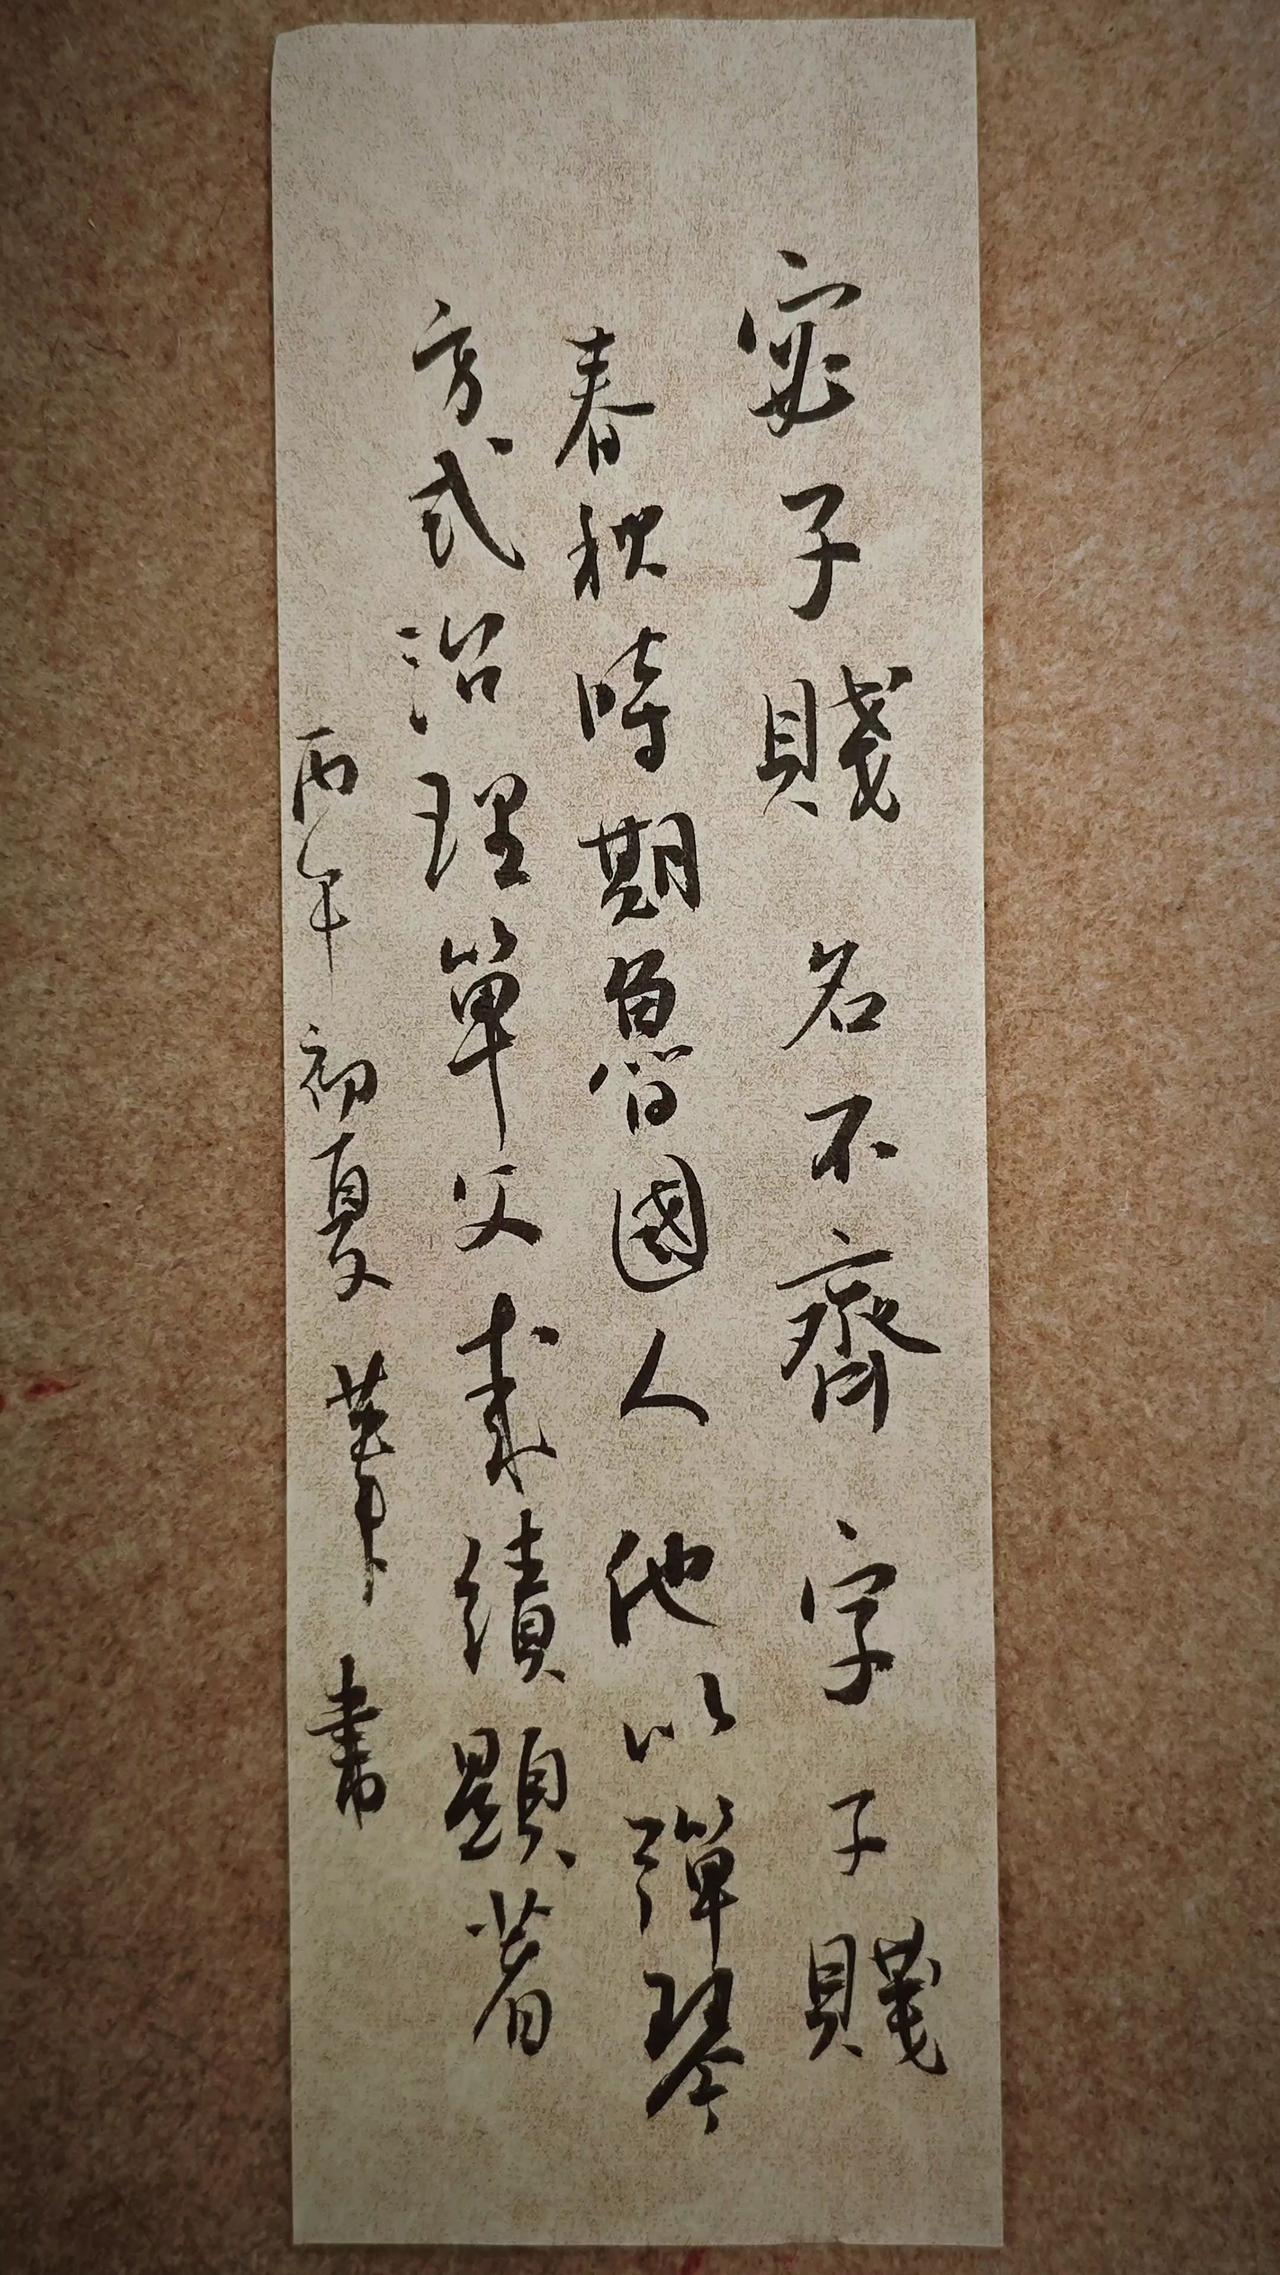 宓子賤名不齊字子賤
春秋時期魯國人他以彈琴
方式治理單父成績顯著
丙午初夏華書